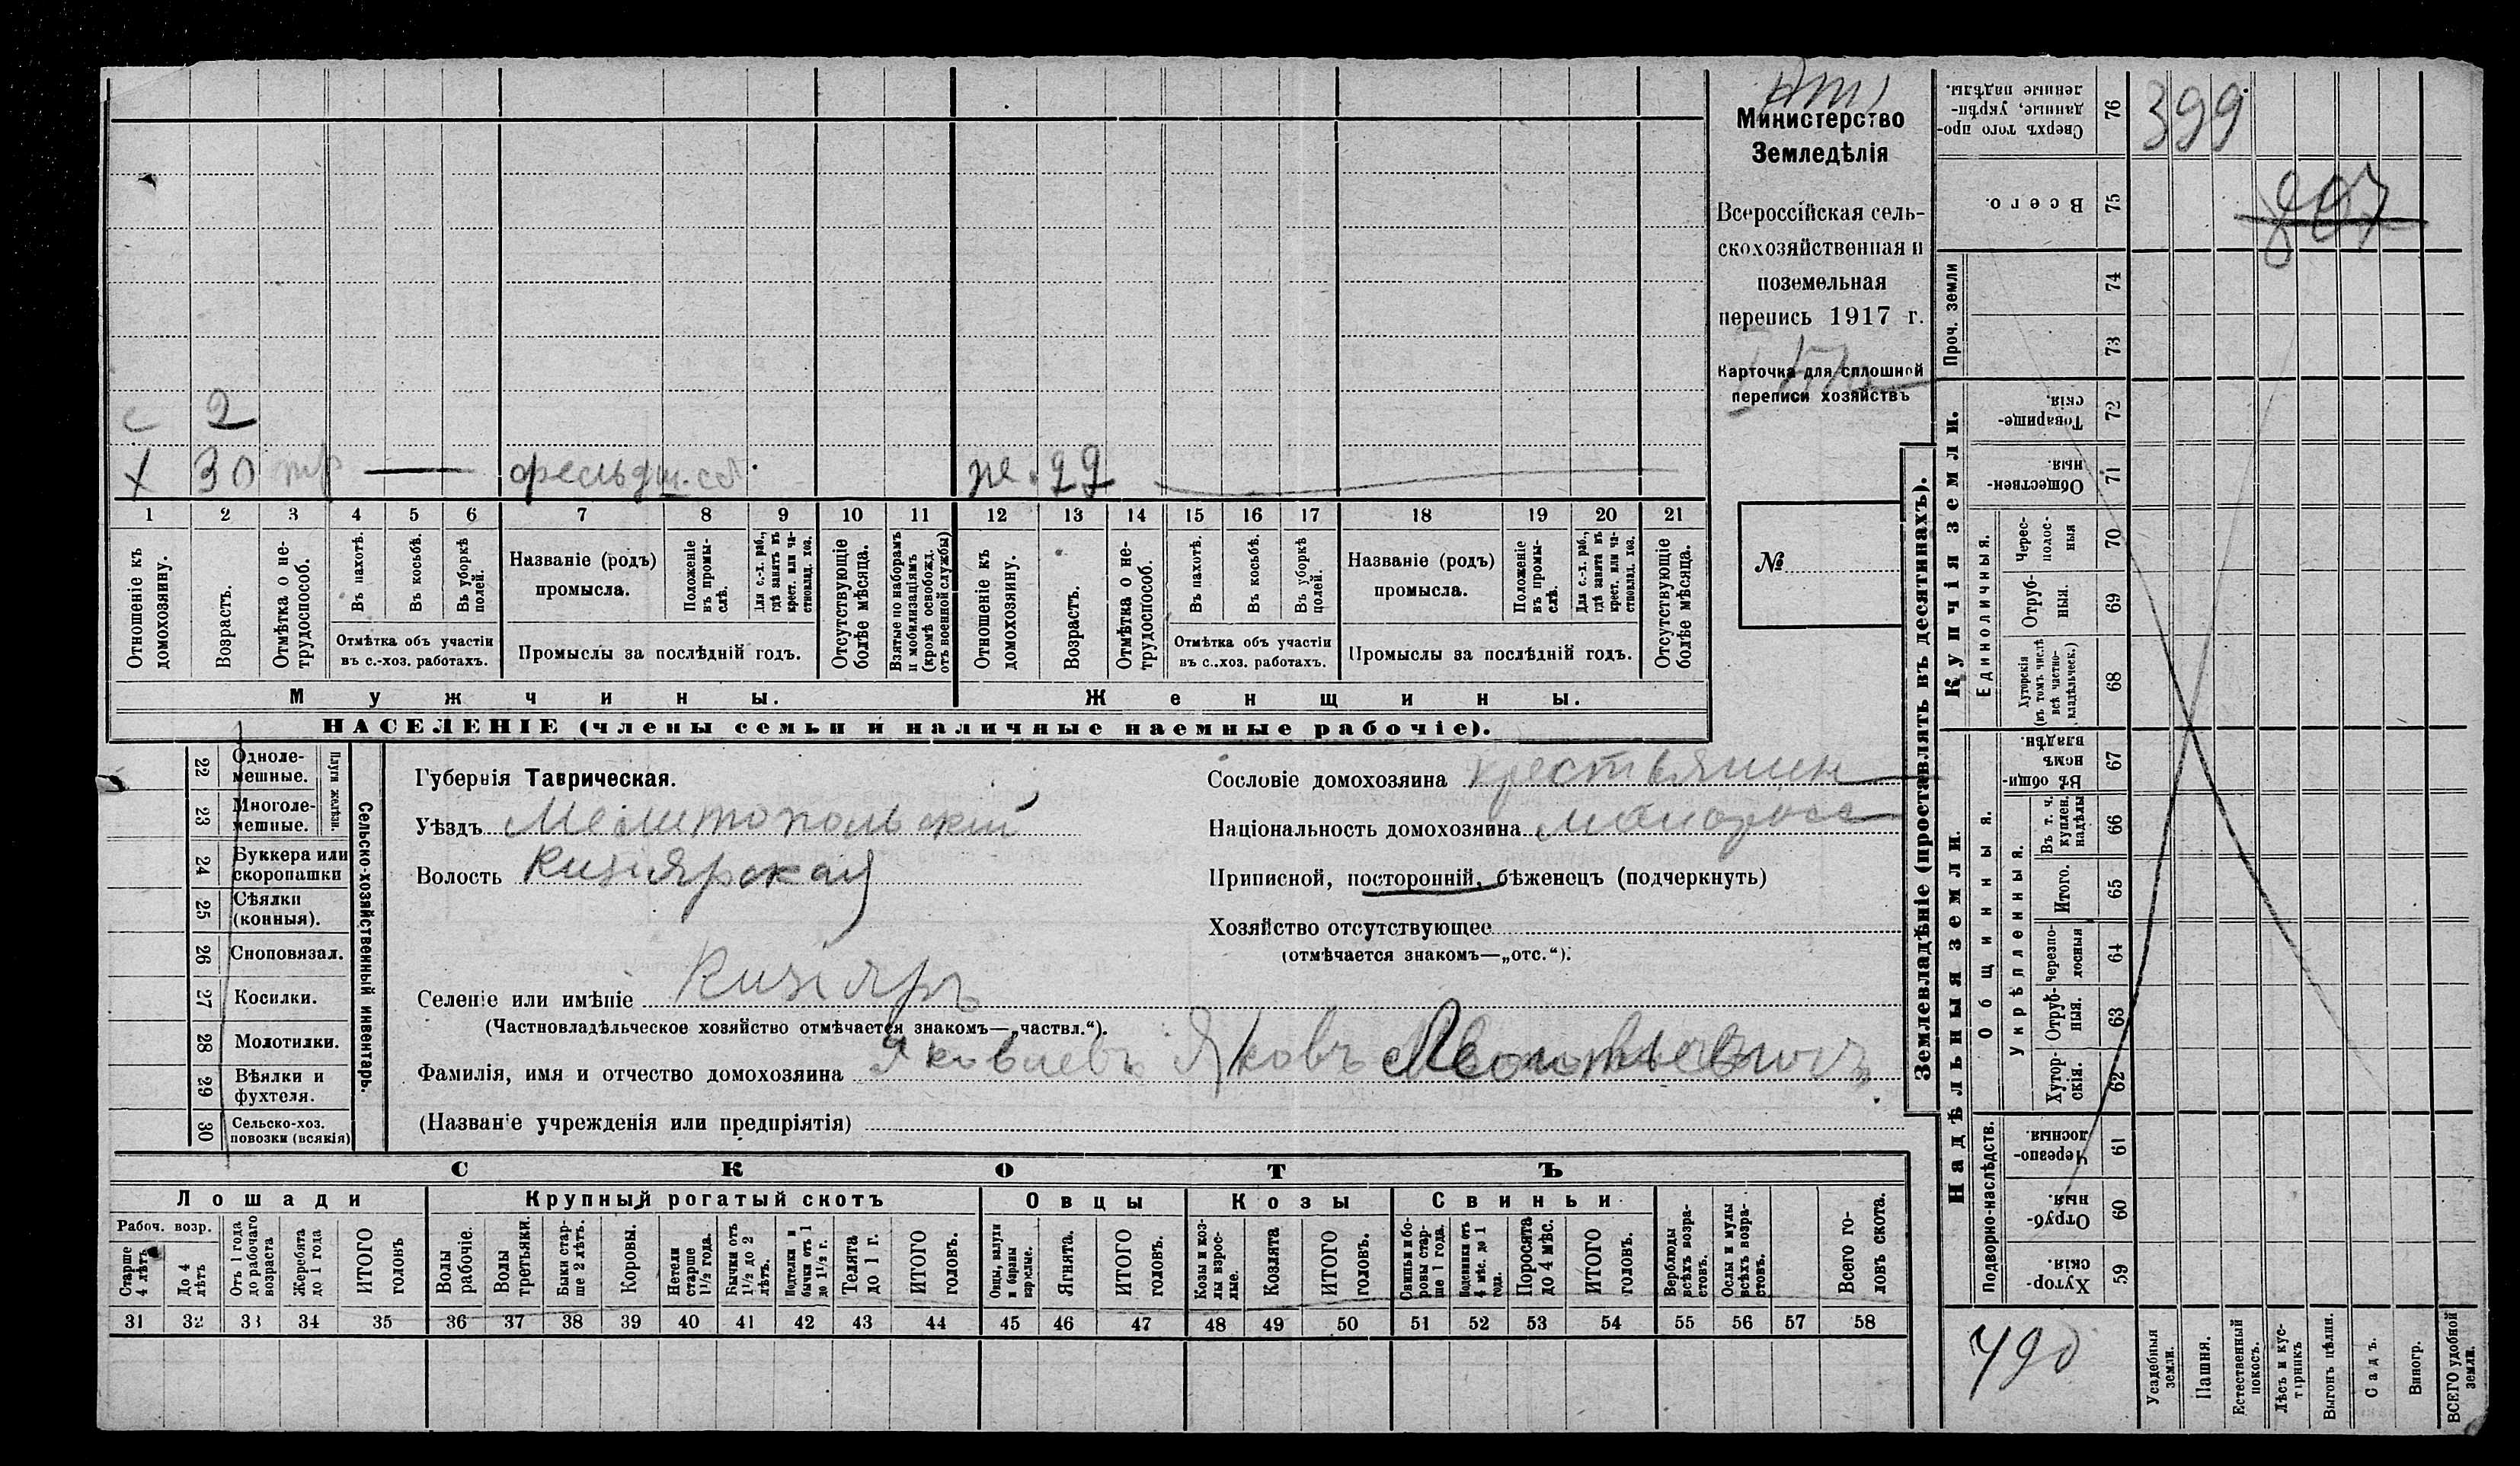 Министерство
Земледѣлія
Всероссійская сель-
скохозяйственная и
поземельная
перепись 1917 г.
Карточка для сплошной
переписи хозяйствъ
№
с 2
х 30 — фельдш.
же. 29
1 2 3 4 5 6 7 8 9 10 11 12 13 14 15 16 17 18 19 20 21
Отношеніе къ домохозяину.
Возрастъ.
Отмѣтка о не-трудоспособ.
Въ пахотѣ.
Въ косьбѣ.
Въ уборкѣ полей.
Отмѣтка объ участіи
въ с.-хоз. работахъ.
Названіе (родъ)
промысла.
Положеніе въ промы-слѣ.
Для с.-х. раб., гдѣ занятъ въ крест. или ча-стновлад. хоз.
Промыслы за послѣдній годъ.
Отсутствующіе болѣе мѣсяца.
Взятые по наборамъ и мобилизаціямъ (кромѣ освобожд. отъ военной службы)
Отношеніе къ домохозяину.
Возрастъ.
Отмѣтка о не-трудоспособ.
Въ пахотѣ.
Въ косьбѣ.
Въ уборкѣ полей.
Отмѣтка объ участіи
въ с..хоз. работахъ.
Названіе (родъ)
промысла.
Положеніе въ промы-слѣ.
Для с.-х. раб., гдѣ занята въ крест. или ча-стновлад. хоз.
Промыслы за послѣдній годъ.
Отсутствующіе болѣе мѣсяца.
Мужчины.
Женщины.
НАСЕЛЕНІЕ (члены семьи и наличные наемные рабочіе).
22 Одноле-мешные.
23 Многоле-мешные.
Плуги желѣзн.
24 Буккера или скоропашки
25 Сѣялки (конныя).
26 Сноповязал.
27 Косилки.
28 Молотилки.
29 Вѣялки и фухтеля.
30 Сельско-хоз. повозки (всякія)
Сельско-хозяйственный инвентарь.
Губернія Таврическая.
Уѣздъ Мелитопольскій
Волость Кизіярская
Селеніе или имѣніе Кизіяръ
(Частновладѣльческое хозяйство отмѣчается знакомъ—„частвл.“).
Фамилія, имя и отчество домохозяина Яковлевъ Яковъ
(Названіе учрежденія или предпріятія)
Сословіе домохозяина крестьянин
Національность домохозяина малоросс
Приписной, посторонній, бѣженецъ (подчеркнуть)
Хозяйство отсутствующее
(отмѣчается знакомъ—„отс.“).
СКОТЪ
Лошади
Рабоч. возр.
Старше 4 лѣтъ
До 4 лѣтъ
Отъ 1 года до рабочаго возраста
Жеребята до 1 года
ИТОГО головъ
Крупный рогатый скотъ
Волы рабочіе.
Волы третьяки.
Быки стар-ше 2 лѣтъ.
Коровы.
Нетели старше 1½ года.
Бычки отъ 1½ до 2 лѣтъ.
Подтелки и бычки отъ 1 до 1½ г.
Телята до 1 г.
ИТОГО головъ.
Овцы
Овцы, валухи и бараны взрослые.
Ягнята.
ИТОГО головъ.
Козы
Козы и коз-лы взрос-лые.
Козлята
ИТОГО головъ.
Свиньи
Свиньи и бо-ровы стар-ше 1 года.
Подсвинки отъ 4 мѣс. до 1 года.
Поросята до 4 мѣс.
ИТОГО головъ.
Верблюды всѣхъ возра-стовъ.
Ослы и мулы всѣхъ возра-стовъ.
Всего го-ловъ скота.
31 32 33 34 35 36 37 38 39 40 41 42 43 44 45 46 47 48 49 50 51 52 53 54 55 56 57 58
Землевладѣніе (проставлять въ десятинахъ).
399
807
Сверхъ того про-данные, укрѣп-ленные надѣлы. 76
Всего. 75
Проч. земли 74 73
Купчія земли.
Товарище-скія. 72
Обществен-ныя. 71
Единоличныя.
Черес-полос-ныя 70
Отруб-ныя. 69
Хуторскія (въ томъ числѣ всѣ частно-владѣльческ.) 68
Надѣльныя земли.
Общинныя.
Въ общин-номъ владѣн. 67
Укрѣпленныя.
Въ т. ч. куплен. надѣлы 66
Итого. 65
Черезпо-лосныя 64
Отруб-ныя. 63
Хутор-скія. 62
Подворно-наслѣдств.
Черезпо-лосныя. 61
Отруб-ныя. 60
Хутор-скія. 59
490
Усадебныя земли.
Пашня.
Естественный покосъ.
Лѣсъ и кус-тарникъ
Выгонъ цѣлин.
Садъ.
Виногр.
ВСЕГО удобной земли.